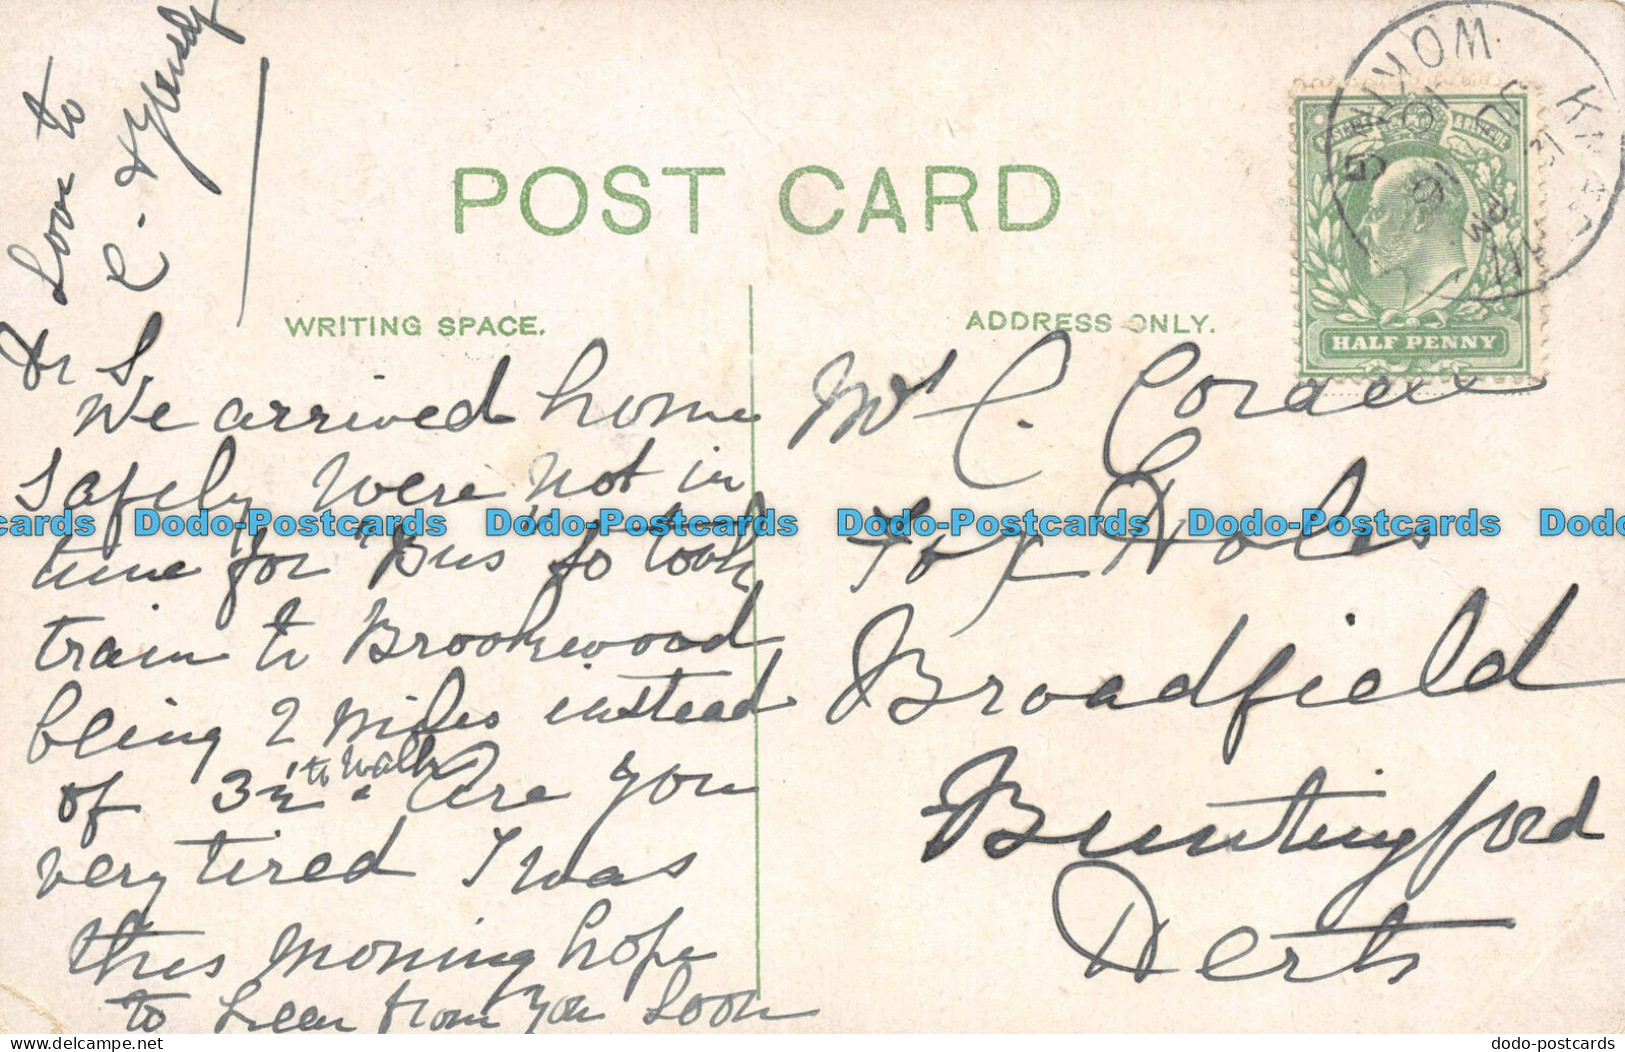 POST CARD
WRITING SPACE.
ADDRESS ONLY.
HALF PENNY
WOKING
KNAPHILL
JY 31
5 PM
Dr S,
We arrived home
safely were not in
time for "Bus" so took
train to Brookwood
being 2 miles instead
of 3½ to walk. Are you
very tired I was
this morning hope
to hear from you soon
Love to
Mrs C. Cordell
Fox Holes
Broadfield
Buntingford
Herts
Dodo-Postcards Dodo-Postcards Dodo-Postcards Dodo-Postcards
dodo-postcards.delcampe.net
dodo-postcards